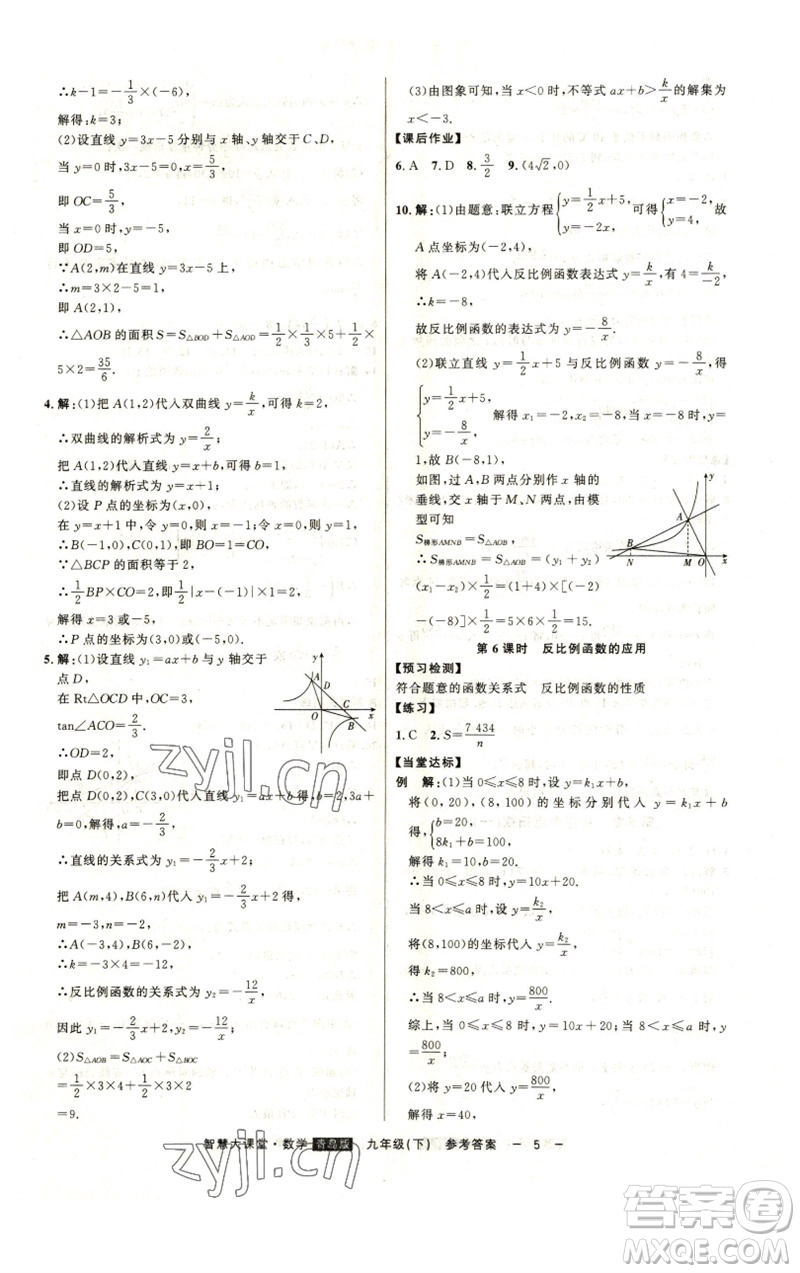 ∴k-1=-1/3×(-6),
解得:k=3;
(2)设直线 y=3x-5分别与 x 轴、y轴交于C、D,
当 y=0 时,3x-5=0,x=5/3,
即 OC=5/3,
当 x=0 时,y=-5,
即 OD=5,
∵A(2,m)在直线 y=3x-5 上,
∴m=3×2-5=1,
即 A(2,1),
∴△AOB 的面积 S=S△BOD+S△AOD=1/2×1/3×5+1/2×
5×2=35/6.
4.解:(1)把 A(1,2)代入双曲线 y=k/x,可得 k=2,
∴双曲线的解析式为 y=2/x;
把 A(1,2)代入直线 y=x+b,可得 b=1,
∴直线的解析式为 y=x+1;
(2)设 P 点的坐标为(x,0),
在 y=x+1 中,令 y=0,则 x=-1;令 x=0,则 y=1,
∴B(-1,0),C(0,1),即 BO=1=CO,
∵△BCP 的面积等于 2,
∴1/2BP×CO=2,即1/2|x-(-1)|×1=2,
解得 x=3 或-5,
∴P 点的坐标为(3,0)或(-5,0).
5.解:(1)设直线 y₁=ax+b 与 y 轴交于
点 D,
在 Rt△OCD 中,OC=3,
tan∠ACO=2/3.
∴OD=2,
即点 D(0,2),
把点 D(0,2),C(3,0)代入直线 y₁=ax+b 得,b=2,3a+
b=0,解得,a=-2/3,
∴直线的关系式为 y₁=-2/3x+2;
把 A(m,4),B(6,n)代入 y₁=-2/3x+2 得,
m=-3,n=-2,
∴A(-3,4),B(6,-2),
∴k=-3×4=-12,
∴反比例函数的关系式为 y₂=-12/x,
因此 y₁=-2/3x+2,y₂=-12/x;
(2)S△AOB=S△AOC+S△BOC
=1/2×3×4+1/2×3×2
=9.
y
A
D
C
O
B
x
(3)由图象可知,当 x<0 时,不等式 ax+b>k/x 的解集为
x<-3.
【课后作业】
6.A 7.D 8.3/2 9.(4√2,0)
10.解:(1)由题意:联立方程{y=1/2x+5, y=-2x, 可得{x=-2, y=4, 故
A 点坐标为(-2,4),
将 A(-2,4)代入反比例函数表达式 y=k/x,有 4=k/-2,
∴k=-8,
故反比例函数的表达式为 y=-8/x;
(2)联立直线 y=1/2x+5 与反比例函数 y=-8/x,得
{y=1/2x+5, y=-8/x 解得 x₁=-2,x₂=-8,当 x=-8 时,y=
1,故 B(-8,1),
如图,过 A,B 两点分别作 x 轴的
垂线,交 x 轴于 M、N 两点,由模
型可知
S梯形AMNB=S△AOB,
∴S梯形AMNB=S△AOB=(y₁+y₂)×
(x₁-x₂)×1/2=(1+4)×[(-2)
-(-8)]×1/2=5×6×1/2=15.
y
A
B
N
M
O
x
第 6 课时 反比例函数的应用
【预习检测】
符合题意的函数关系式 反比例函数的性质
【练习】
1.C 2.S=7 434/n
【当堂达标】
例 解:(1)当 0≤x≤8 时,设 y=k₁x+b,
将(0,20),(8,100)的坐标分别代入 y=k₁x+b
得,{b=20, 8k₁+b=100,
解得 k₁=10,b=20.
∴当 0≤x≤8 时,y=10x+20.
当 8<x≤a 时,设 y=k₂/x,
将(8,100)的坐标代入 y=k₂/x,
得 k₂=800,
∴当 8<x≤a 时,y=800/x.
综上,当 0≤x≤8 时,y=10x+20;当 8<x≤a 时,
y=800/x;
(2)将 y=20 代入 y=800/x,
解得 x=40,
智慧大课堂·数学 青岛版 九年级(下) 参考答案 — 5 —
zyjl.cn
zyjl.cn
答案圈
MXQE.COM